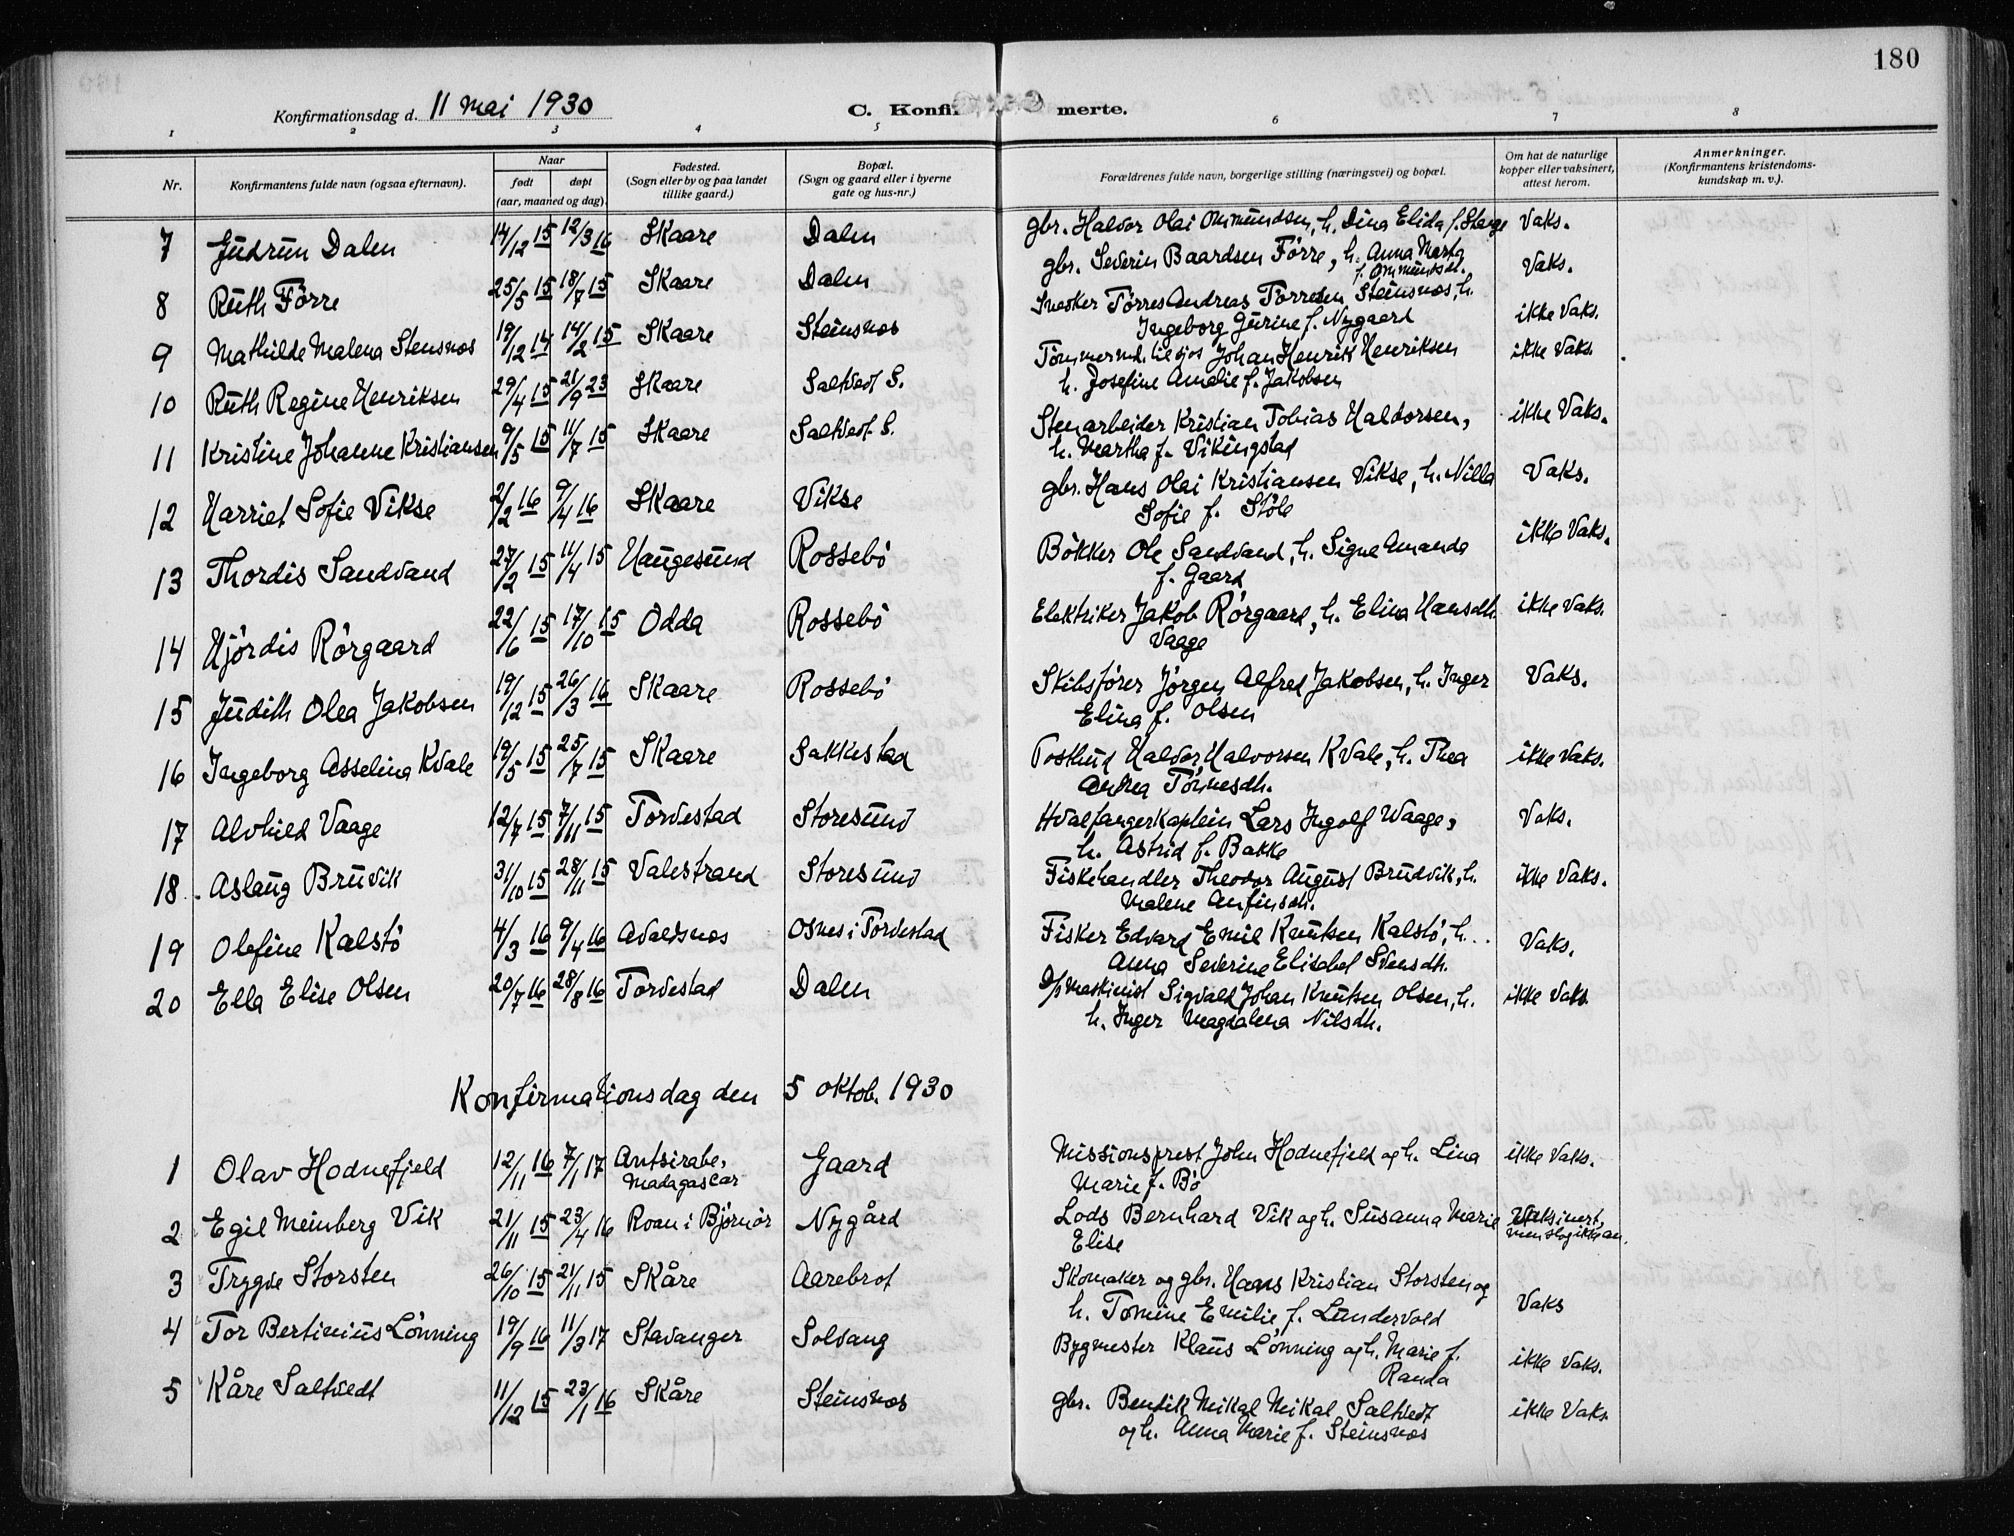 180
Konfirmationsdag d. 11 mai 1930
C. Konfirmerte.
1 2 3 4 5 6 7 8
Nr. Konfirmantens fulde navn (ogsaa efternavn). Naar født døpt (aar, maaned og dag). Fødested. (Sogn eller by og paa landet tillike gaard.) Bopæl. (Sogn og gaard eller i byerne gate og hus-nr.) Forældrenes fulde navn, borgerlige stilling (næringsvei) og bopæl. Om hat de naturlige kopper eller vaksinert, attest herom. Anmerkninger. (Konfirmantens kristendomskundskap m. v.).
7 Gudrun Dalen 14/12 15 12/3 16 Skaare Dalen gbr. Haldor Olai Ommundsen, h. Dina Elida f. Stange Vaks.
8 Ruth Førre 25/5 15 18/7 15 Skaare Dalen gbr. Severin Baardsen Førre, h. Anna Marta f. Ommundsd. Vaks.
9 Mathilde Malena Stensnos 19/12 14 14/2 15 Skaare Steinsnos Snedker Tørres Andreas Torresen Steinsnos, h.
Ingeborg Gurine f. Nygaard ikke Vaks.
10 Ruth Regine Henriksen 29/4 15 21/9 23 Skaare Saltvedt S. Tømmermd. tilsjøs Johan Henrik Henriksen ikke Vaks.
h. Josefine Amelie f. Jakobsen
11 Kristine Johanne Kristiansen 9/5 15 11/7 15 Skaare Saltvedt S. Stenarbeider Kristian Tobias Haldorsen, ikke Vaks.
h. Martha f. Vikingstad
12 Harriet Sofie Vikse 2/2 16 9/4 16 Skaare Vikse gbr. Hans Olai Kristiansen Vikse, h. Nilla Vaks.
Sofie f. Støle
13 Thordis Sandvand 27/2 15 11/4 15 Haugesund Rossebø Bøkker Ole Sandvand, h. Signe Amanda ikke Vaks.
f. Gaard
14 Hjørdis Rørgaard 22/6 15 17/10 15 Odda Rossebø Elektriker Jakob Rørgaard, h. Elina Hansdh. ikke Vaks.
Vaage
15 Judith Olea Jakobsen 19/12 15 26/3 16 Skaare Rossebø Skibsfører Jørgen Alfred Jakobsen, h. Inger Vaks.
Elina f. Olsen
16 Ingeborg Asselina Kvale 19/5 15 25/7 15 Skaare Sakkestad Postbud Haldor Halvorsen Kvale, h. Thea ikke Vaks.
Andrea Tønnesdh.
17 Alvhild Vaage 12/7 15 7/11 15 Torvestad Storesund Hvalfangerkaptein Lars Ingolf Waage, Vaks.
h. Astrid f. Bakke
18 Aslaug Bruvik 31/10 15 28/11 15 Valestrand Storesund Fiskehandler Theodor August Brudvik, h. ikke Vaks.
Malene Anfinsdh.
19 Olefine Kalstø 4/3 16 9/4 16 Avaldsnos Osnes i Torvestad Fisker Edvard Emil Knutsen Kalstø, h. Vaks.
Anna Severine Elisabet Svensdh.
20 Ella Elise Olsen 20/7 16 28/8 16 Torvestad Dalen D/pmaskinist Sigvald Johan Knutsen Olsen, h. ikke Vaks
h. Inger Magdalena Nilsdh.
Konfirmationsdag den 5 oktob. 1930
1 Olav Hodnefjeld 12/11 16 7/1 17 Antsirabe, Madagascar Gaard Missionsprest John Hodnefjeld og h. Lina ikke Vaks.
Marie f. Bø
2 Egil Meinberg Vik 21/11 15 23/4 16 Roan i Bjørnør Nygård Lods Bernhard Vik og h. Susanna Marie Vaksinert, men slog ikke an.
Elise
3 Trygve Storsten 26/10 15 21/11 15 Skåre Aarebrot Skomaker og gbr. Hans Kristian Storsten og
h. Tomine Emilie f. Landervold Vaks
4 Tor Bertinius Lønning 19/9 16 11/3 17 Stavanger Solvang Bygmester Klaus Lønning og h. Marie f.
Randa ikke Vaks.
5 Kåre Saltvedt 11/12 15 23/1 16 Skåre Steinsnos gbr. Bendik Mikal Mikal Saltvedt ikke Vaks.
og h. Anna Marie f. Steinsnos